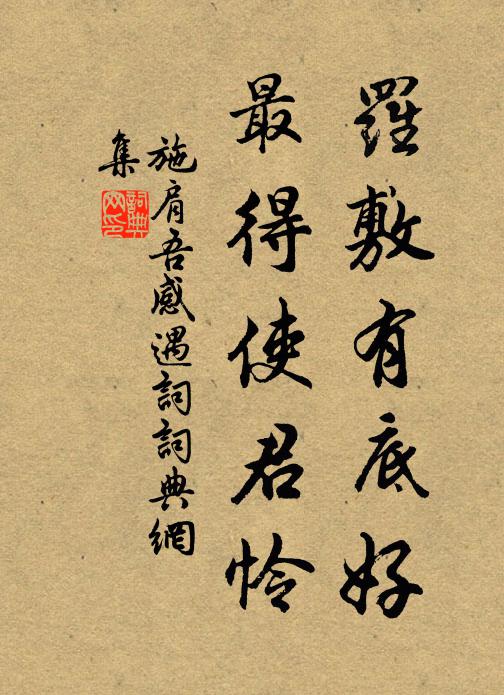 羅敷有底好
最得使君怜
施肩吾感遇詞詞典網
集
詞典
网印